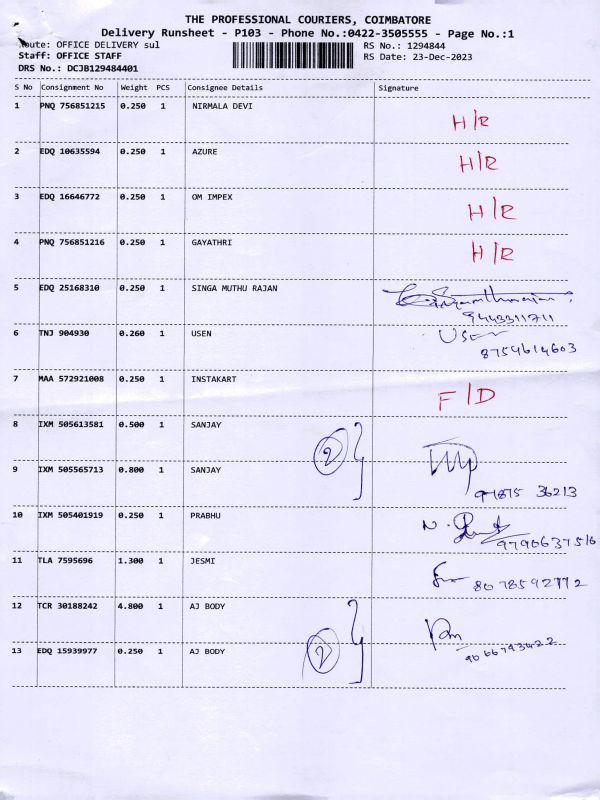 THE PROFESSIONAL COURIERS, COIMBATORE
Delivery Runsheet - P103 - Phone No.:0422-3505555 - Page No.:1
Route: OFFICE DELIVERY sul RS No.: 1294844
Staff: OFFICE STAFF RS Date: 23-Dec-2023
DRS No.: DCJB129484401
S No Consignment No Weight PCS Consignee Details Signature
1 PNQ 756851215 0.250 1 NIRMALA DEVI H/R
2 EDQ 10635594 0.250 1 AZURE H/R
3 EDQ 16646772 0.250 1 OM IMPEX H/R
4 PNQ 756851216 0.250 1 GAYATHRI H/R
5 EDQ 25168310 0.250 1 SINGA MUTHU RAJAN
9443311711
6 TNJ 904930 0.260 1 USEN User
8754614603
7 MAA 572921008 0.250 1 INSTAKART F/D
8 IXM 505613581 0.500 1 SANJAY
2
9 IXM 505565713 0.800 1 SANJAY
91875 36213
10 IXM 505401919 0.250 1 PRABHU
9790637516
11 TLA 7595696 1.300 1 JESMI
8078592772
12 TCR 30188242 4.800 1 AJ BODY
2
13 EDQ 15939977 0.250 1 AJ BODY